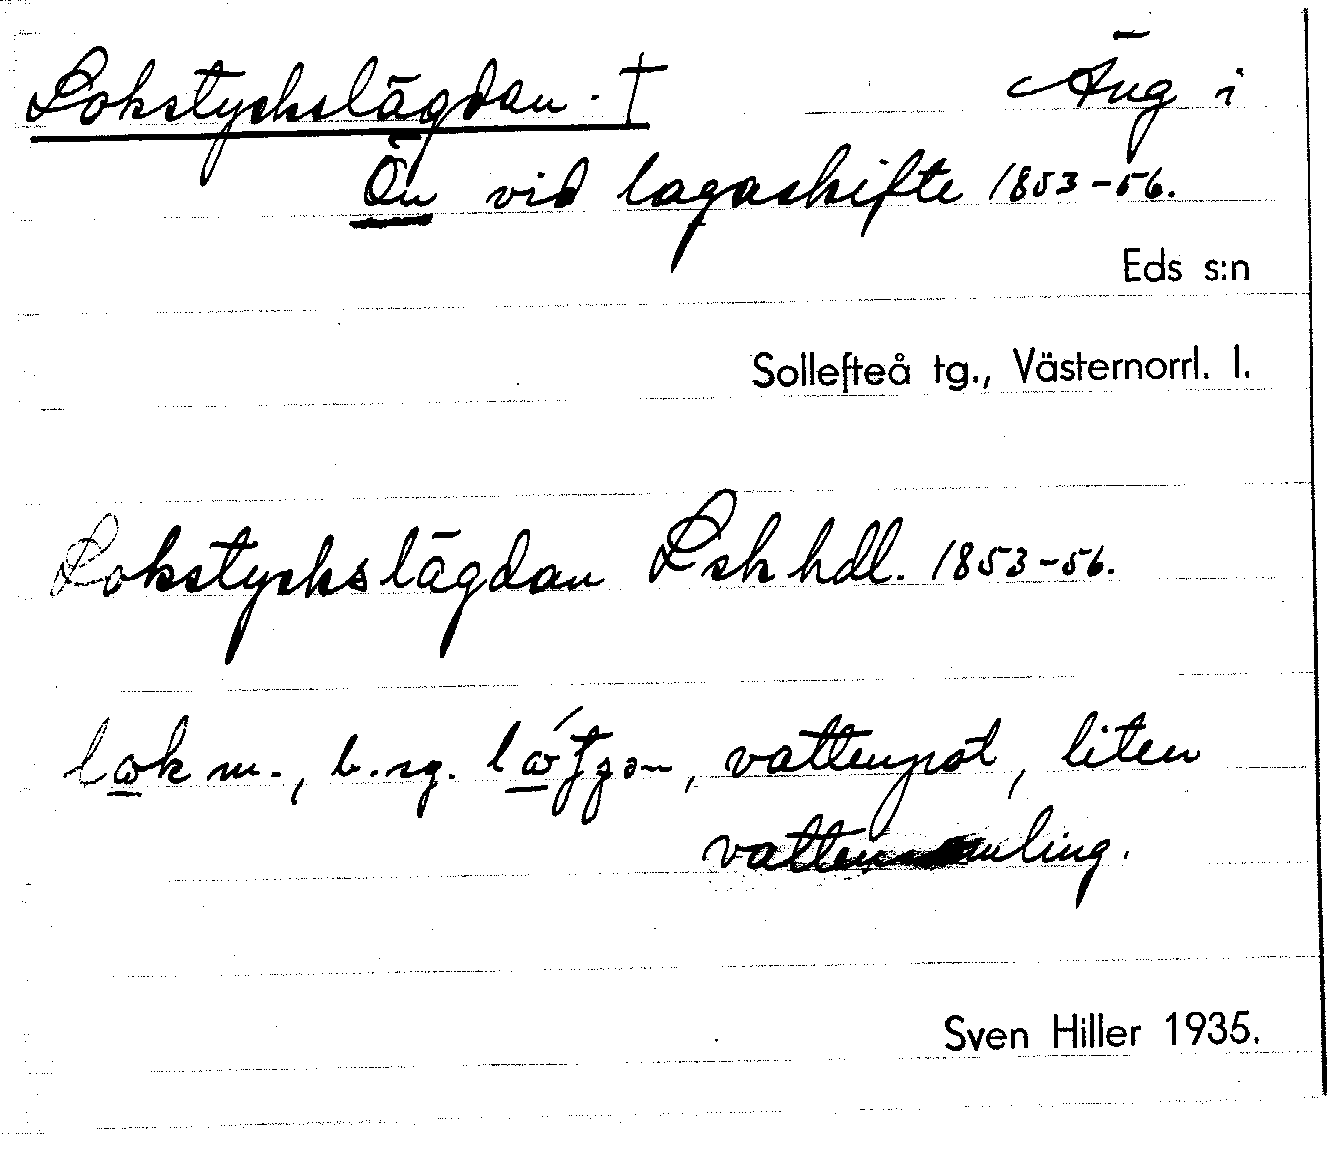 Lokstyckslägdan. † Äng i
Ön vid lagaskifte 1853-56.
Eds s:n
Sollefteå tg., Västernorrl. l.
Lokstyckslägdan Lsk hdl. 1853-56.
lok m., b.sg. vattenpöl, liten
vattensamling.
Sven Hiller 1935.